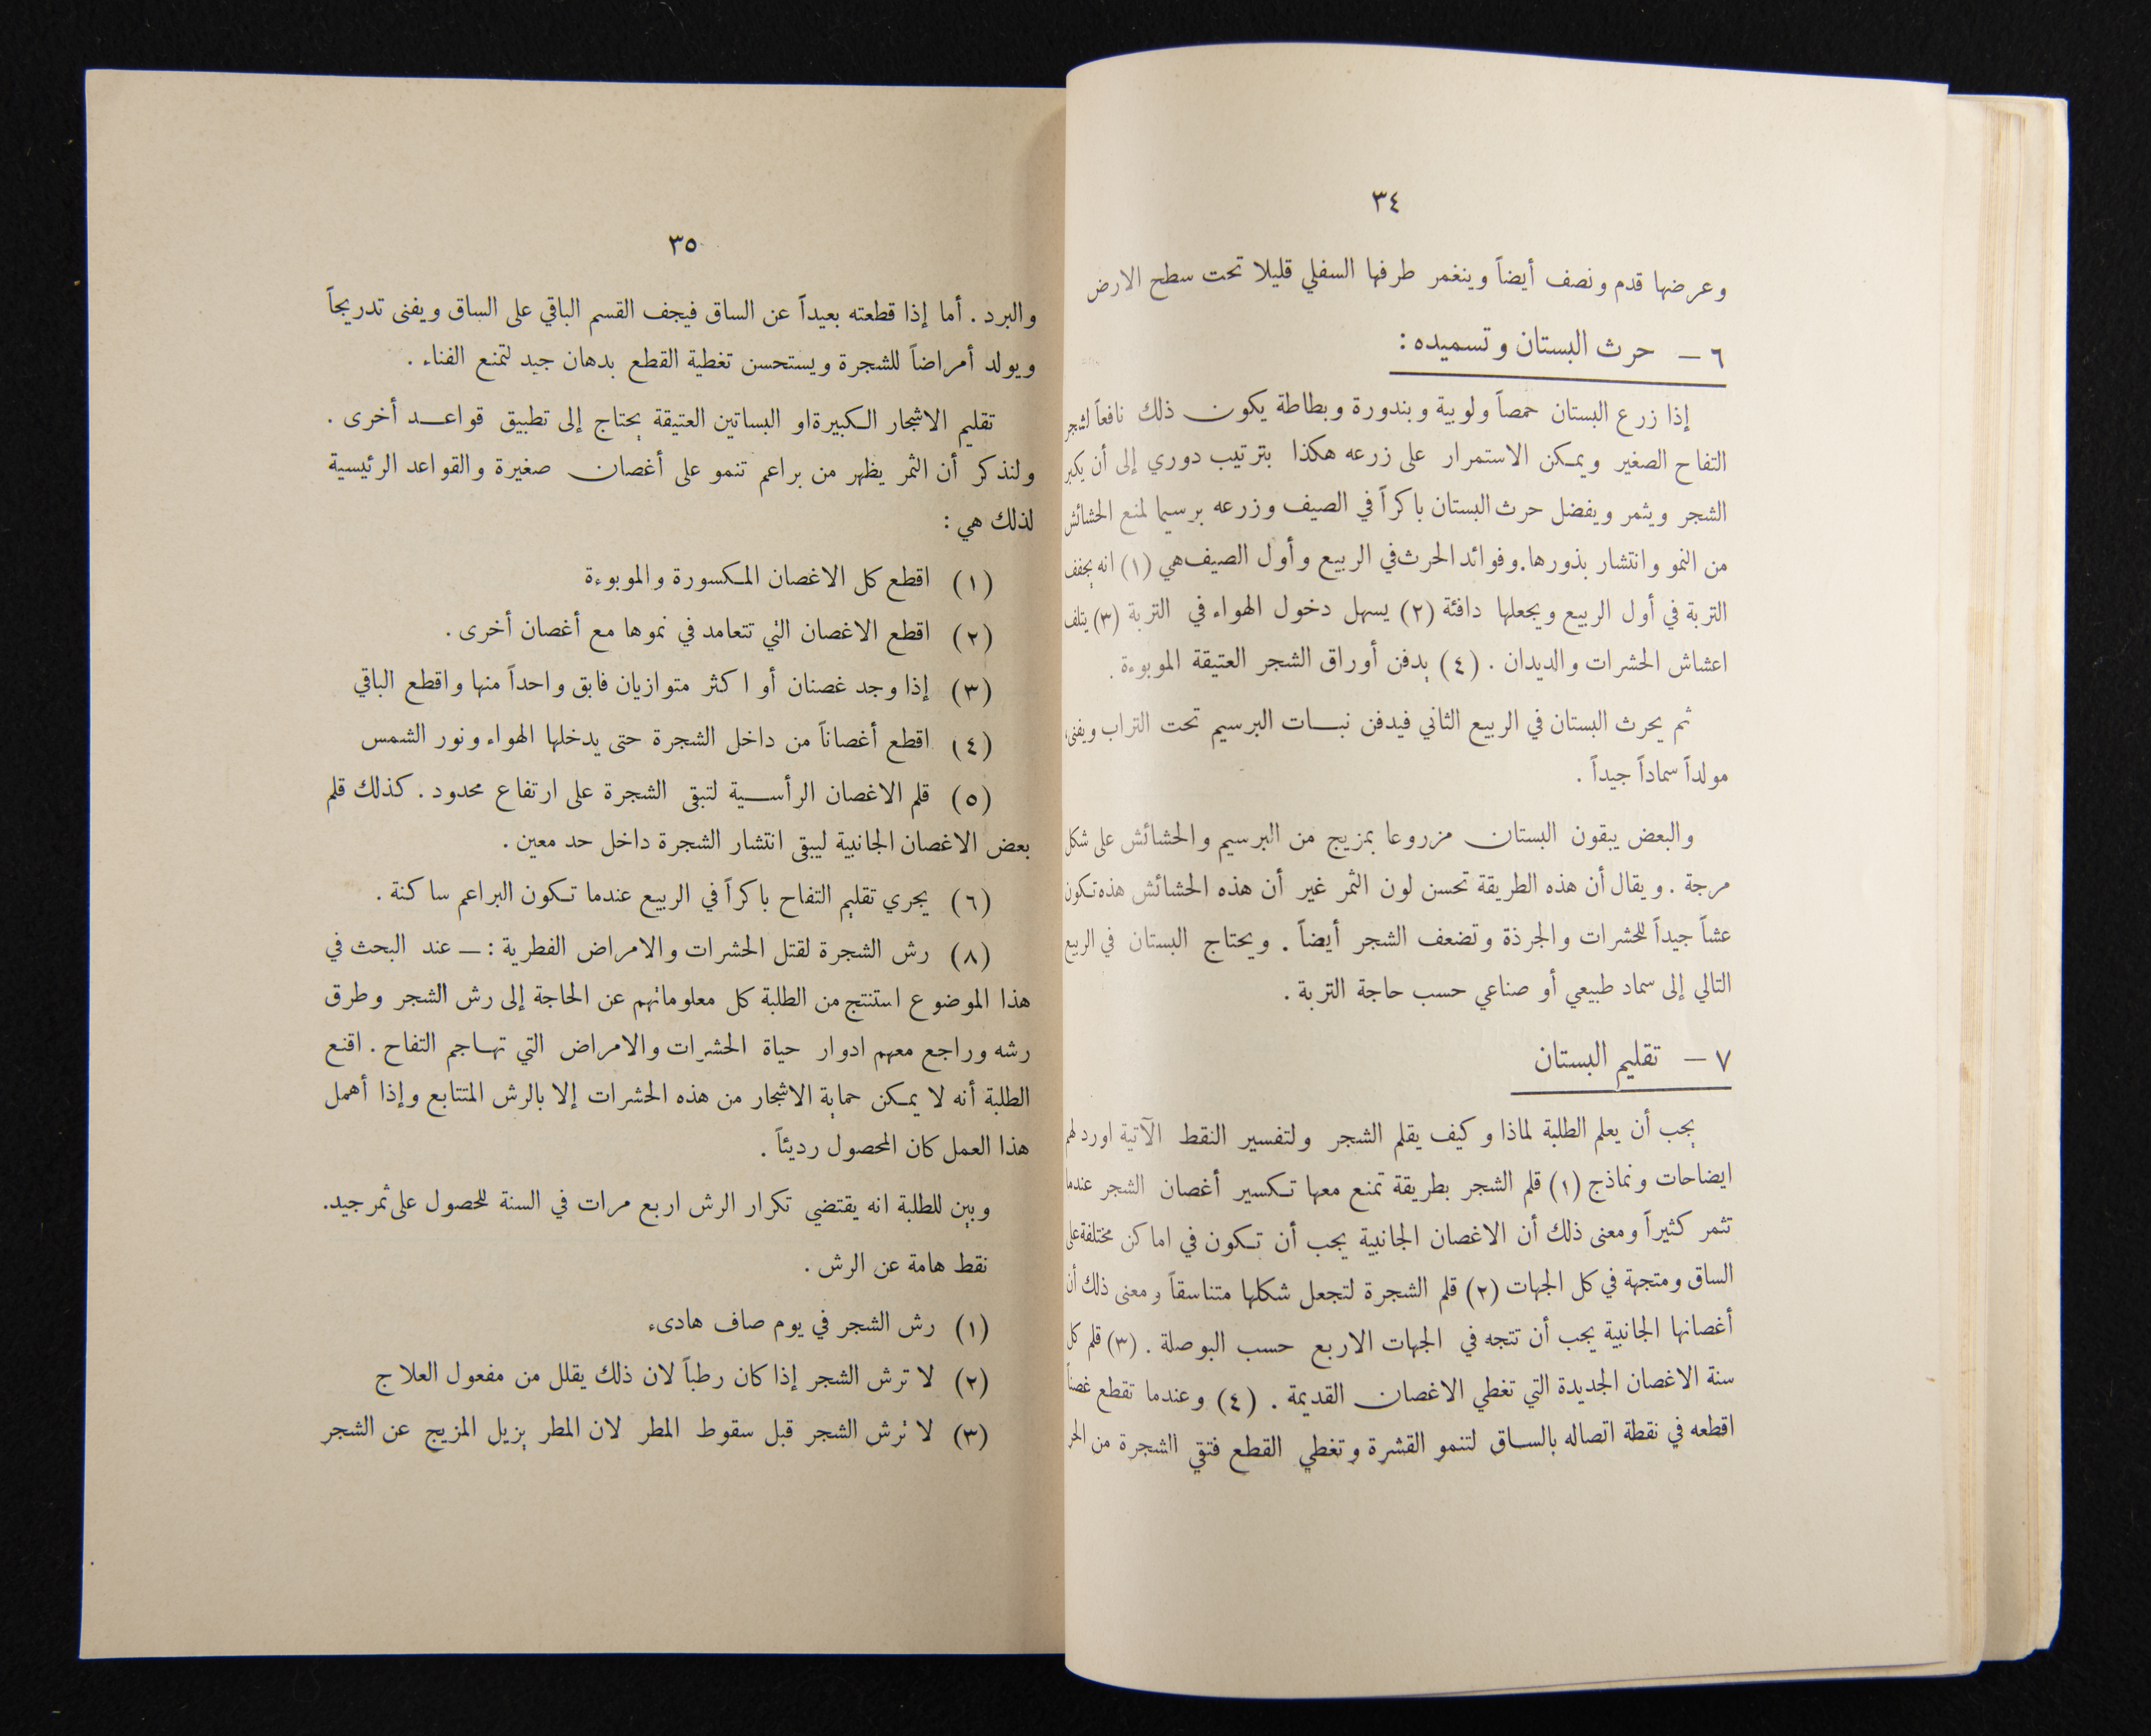 ٣٤
وعرضها قدم ونصف أيضاً وينغمر طرفها السفلي قليلا تحت سطح الارض
٦ – حرث البستان وتسميده :
إذا زرع البستان حمصاً ولوبية وبندورة وبطاطة يكون ذلك نافعاً لشجر
التفاح الصغير ويمكن الاستمرار على زرعه هكذا بترتيب دوري إلى أن يكبر
الشجر ويثمر ويفضل حرث البستان باكراً في الصيف وزرعه برسيما لمنع الحشائش
من النمو وانتشار بذورها. وفوائد الحرث في الربيع وأول الصيف هي (١) انه يجفف
التربة في أول الربيع ويجعلها دافئة (٢) يسهل دخول الهواء في التربة (٣) يتلف
اعشاش الحشرات والديدان . (٤) يدفن أوراق الشجر العتيقة الموبوءة .
ثم يحرث البستان في الربيع الثاني فيدفن نبات البرسيم تحت التراب ويفنى،
مولداً سماداً جيداً .
والبعض يبقون البستان مزروعا بمزيج من البرسيم والحشائش على شكل
مرجة . ويقال أن هذه الطريقة تحسن لون الثمر غير أن هذه الحشائش هذه تكون
عشاً جيداً للحشرات والجرذة وتضعف الشجر أيضاً . ويحتاج البستان في الربيع
التالي إلى سماد طبيعي أو صناعي حسب حاجة التربة .
٧ – تقليم البستان
يجب أن يعلم الطلبة لماذا وكيف يقلم الشجر ولتفسير النقط الآتية اورد لهم
ايضاحات ونماذج (١) قلم الشجر بطريقة تمنع معها تكسير أغصان الشجر عندما
تثمر كثيراً ومعنى ذلك أن الاغصان الجانبية يجب أن تكون في اماكن مختلفة على
الساق ومتجهة في كل الجهات (٢) قلم الشجرة لتجعل شكلها متناسقاً ومعنى ذلك أن
أغصانها الجانبية يجب أن تتجه في الجهات الاربع حسب البوصلة . (٣) قلم كل
سنة الاغصان الجديدة التي تغطي الاغصان القديمة . (٤) وعندما تقطع غصناً
اقطعه في نقطة اتصاله بالساق لتنمو القشرة وتغطي القطع فتقي الشجرة من الحر
٣٥
والبرد . أما إذا قطعته بعيداً عن الساق فيجف القسم الباقي على الساق ويفنى تدريجاً
ويولد أمراضاً للشجرة ويستحسن تغطية القطع بدهان جيد لتمنع الفناء .
تقليم الاشجار الكبيرة او البساتين العتيقة يحتاج إلى تطبيق قواعد أخرى .
ولنذكر أن الثمر يظهر من براعم تنمو على أغصان صغيرة والقواعد الرئيسية
لذلك هي :
(١) اقطع كل الاغصان المكسورة والموبوءة
(٢) اقطع الاغصان التي تتعامد في نموها مع أغصان أخرى .
(٣) إذا وجد غصنان أو اكثر متوازيان فابق واحداً منها واقطع الباقي
(٤) اقطع أغصاناً من داخل الشجرة حتى يدخلها الهواء ونور الشمس
(٥) قلم الاغصان الرأسية لتبقى الشجرة على ارتفاع محدود . كذلك قلم
بعض الاغصان الجانبية ليبقى انتشار الشجرة داخل حد معين .
(٦) يجري تقليم التفاح باكراً في الربيع عندما تكون البراعم ساكنة .
(٨) رش الشجرة لقتل الحشرات والامراض الفطرية : – عند البحث في
هذا الموضوع استنتج من الطلبة كل معلوماتهم عن الحاجة إلى رش الشجر وطرق
رشه وراجع معهم ادوار حياة الحشرات والامراض التي تهاجم التفاح . اقنع
الطلبة أنه لا يمكن حماية الاشجار من هذه الحشرات إلا بالرش المتتابع وإذا أهمل
هذا العمل كان المحصول رديئاً .
وبين للطلبة انه يقتضي تكرار الرش اربع مرات في السنة للحصول على ثمر جيد.
نقط هامة عن الرش .
(١) رش الشجر في يوم صاف هادىء
(٢) لا ترش الشجر إذا كان رطباً لان ذلك يقلل من مفعول العلاج
(٣) لا ترش الشجر قبل سقوط المطر لان المطر يزيل المزيج عن الشجر